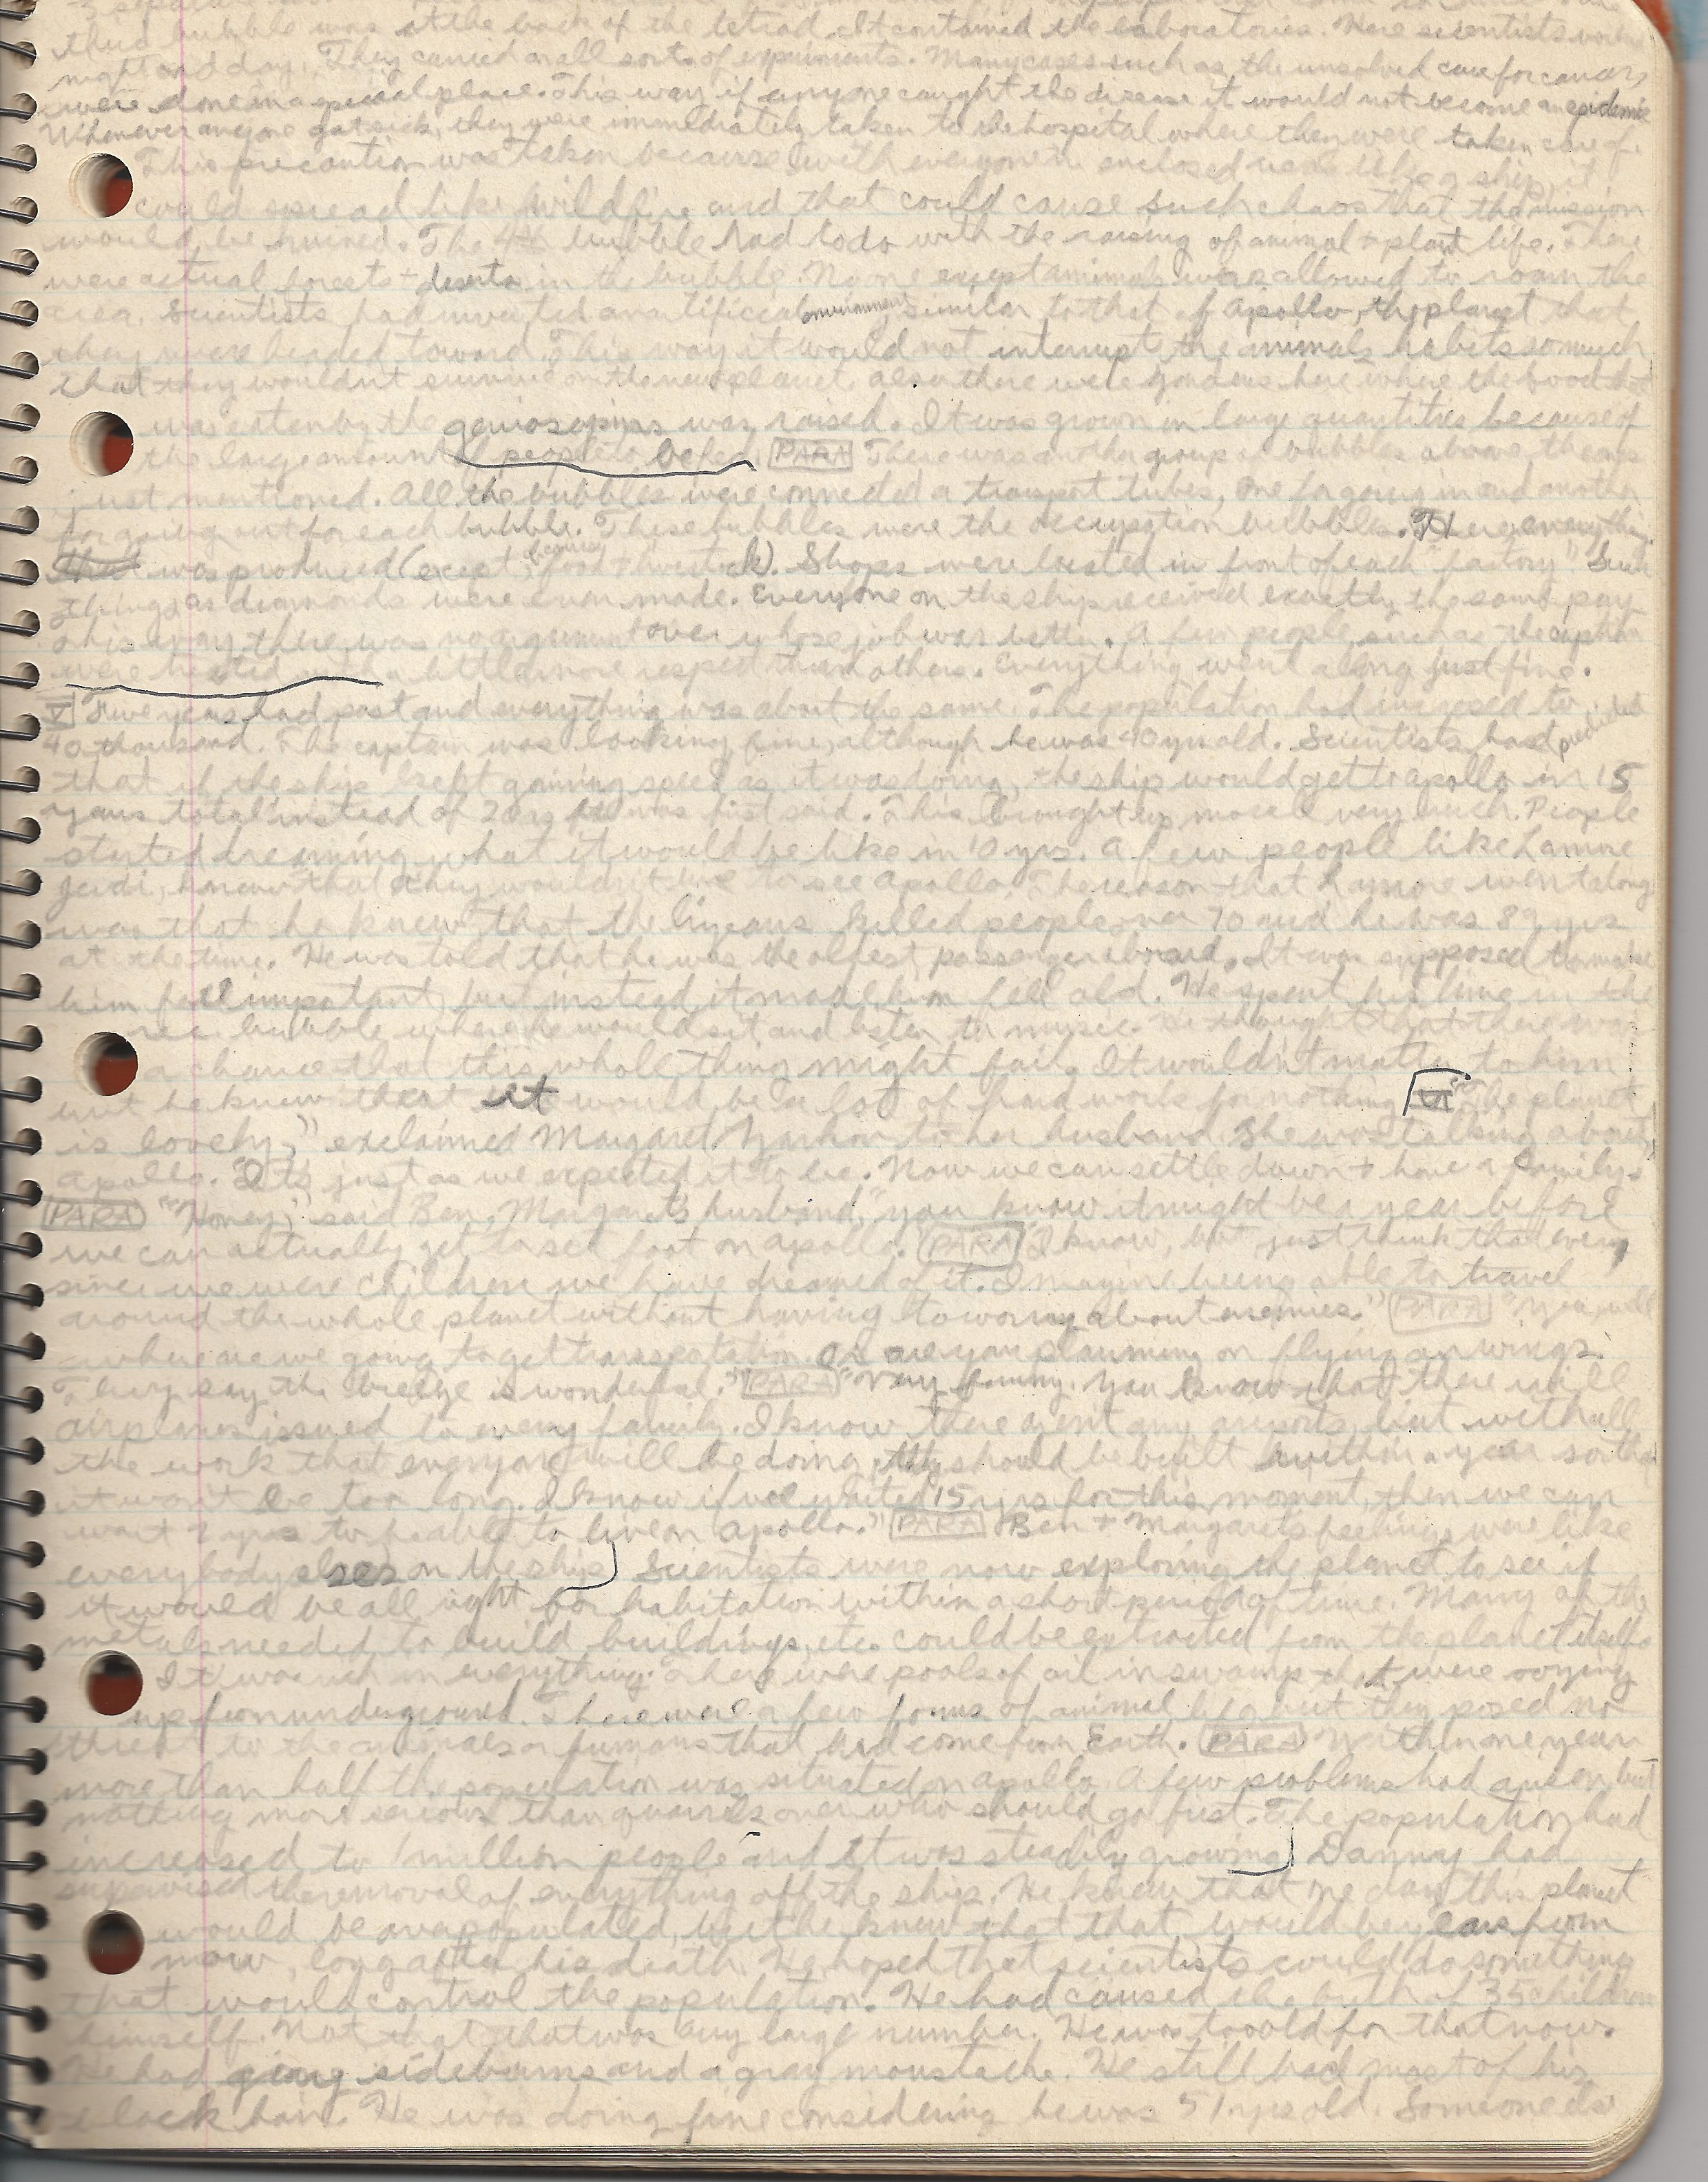 third bubble was at the back of the tetrad. It contained the laboratories. Here scientists worked
night and day. They carried on all sorts of experiments. Many cases such as the unsolved cure for cancer,
were done in a special place. This way if anyone caught the disease it would not become an epidemic
Whenever anyone got sick, they were immediately taken to the hospital where they were taken care of.
This precaution was taken because with everyone in enclosed areas like a ship, it
could spread like wildfire and that could cause such chaos that the mission
would be ruined. The 4th bubble had to do with the raising of animal + plant life. There
were actual forests + deserts in the bubble. No one except animals was allowed to roam the
area. Scientists had invented an artificial environment similar to that of Apollo, the planet that
they were headed toward. This way it would not interrupt the animals habits so much
that they wouldn't survive on the new planet. Also there were gardens here where the food that
was eaten by the was raised. It was grown in large quantities because of
the large amount of people to be fed. PARA There was another group of bubbles above the ones
just mentioned. All the bubbles were connected a transport tubes, one for going in and another
for going out for each bubble. These bubbles were the occupation bubbles. Here everything
was produced (except, of course, food + livestock). Shops were located in front of each "factory". Such
things as diamonds were even made. Everyone on the ship received exactly the same pay
this way there was no argument over whose job was better. A few people such as the captain
were treated with a little more respect than others. Everything went along just fine.
V Five years had past and everything was about the same. The population had incresed to
40 thousand. The captain was looking fine, although he was 40 yrs old. Scientists had predicted
that if the ship kept gaining speed as it was doing, the ship would get to apollo in 15
years total instead of 20 as was first said. This brought up morale very much. People
started dreaming what it would be like in 10 yrs. A few people like Lamne
Jeidi, knew that they wouldn't live to see Apollo. The reason that went along
was that he knew that the killed people over 70 and he was 89 yrs
at the time. He was told that he was the oldest passenger aboard. It was supposed to make
him fell important, but instead it made him fell old. He spent his time in the
rec. bubble where he would sit and listen to music. He thought that there was
a chance that this whole thing might fail. It wouldn't matter to him
but he knew that it would be a lot of hard work for nothing. VI "The planet
is lovely," exclaimed Margaret to her husband. She was talking about
apollo. "It's just as we expected it to be. Now we can settle down + have a family."
PARA "Honey," said Ben, Margaret's husband, "you know it might be a year before
we can actually get to set foot on apollo." PARA "I know, but just think that every
since we were children we have dreamed of it. Imagine being able to travel
around the whole planet without having to worry about enemies." PARA "
where are we going to get transportation. Or are you planning on flying on wings.
They say the breeze is wonderful." PARA "Very funny. You know that there will
airplanes issued to every family. I know there aren't any airports, but with all
the work that everyone will be doing, they should be built within a year so that
it won't be too long. I know if we waited 15 yrs for this moment, then we can
wait 2 yrs to be able to live on Apollo." PARA Ben + Margaret's feelings were like
everybody elses on the ship. Scientists were now exploring the planet to see if
it would be all right for habitation within a short period of time. Many of the
metals needed to build buildings, etc. could be extracted from the planet itself.
It was rich in everything. There were pools of oil in swamps that were oozing
up from underground. There were a few forms of animal life but they posed no
threat to the animals or humans that had come from Earth. PARA Within one year
more than half the population was situated on apollo. A few problems had arisen, but
nothing more serious than quarrels over who should go first. The population had
increased to 1 million people and it was steadily growing. Danny had
supervised the removal of everything off the ship. He knew that one day this planet
would be overpopulated, but he knew that that would be years from
now, long after his death. He hoped that scientists could do something
that would control the population. He had caused the birth of 35 children
himself. Not that that was any large number. He was too old for that now.
He had gray sideburns and a gray moustache. He still had most of his
black hair. He was doing fine considering he was 51 yrs old. Someone else